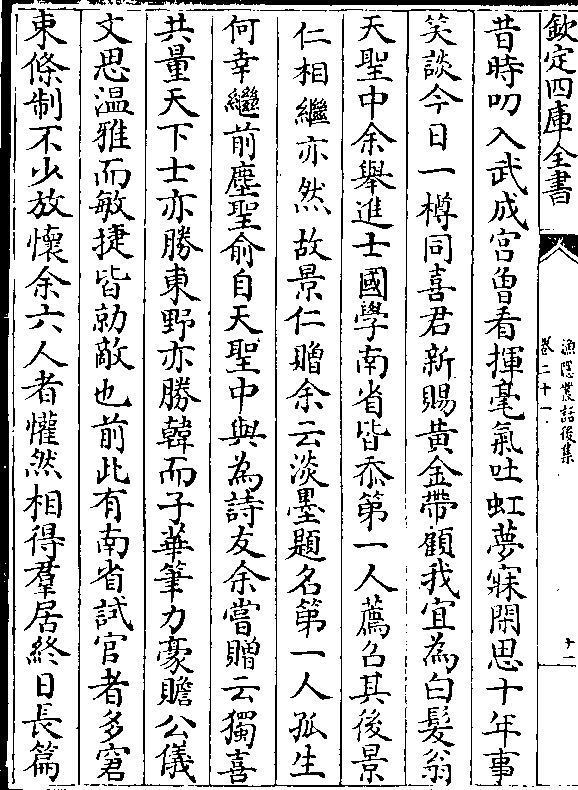 欽定四庫全書
漁隱叢話後集
卷二十一
十二
昔時叨入武成宫曾看揮毫氣吐虹夢寐閑思十年事
笑談今日一樽同喜君新賜黄金帶顧我宜為白髮翁
天聖中余舉進士國學南省皆忝第一人薦名其後景
仁相繼亦然故景仁贈余云淡墨題名第一人孤生
何幸繼前塵聖俞自天聖中與為詩友余嘗贈云獨喜
共量天下士亦勝東野亦勝韓而子華筆力豪贍公儀
文思温雅而敏捷皆勍敵也前此有南省試官者多窘
束條制不少放懷余六人者懽然相得羣居終日長篇